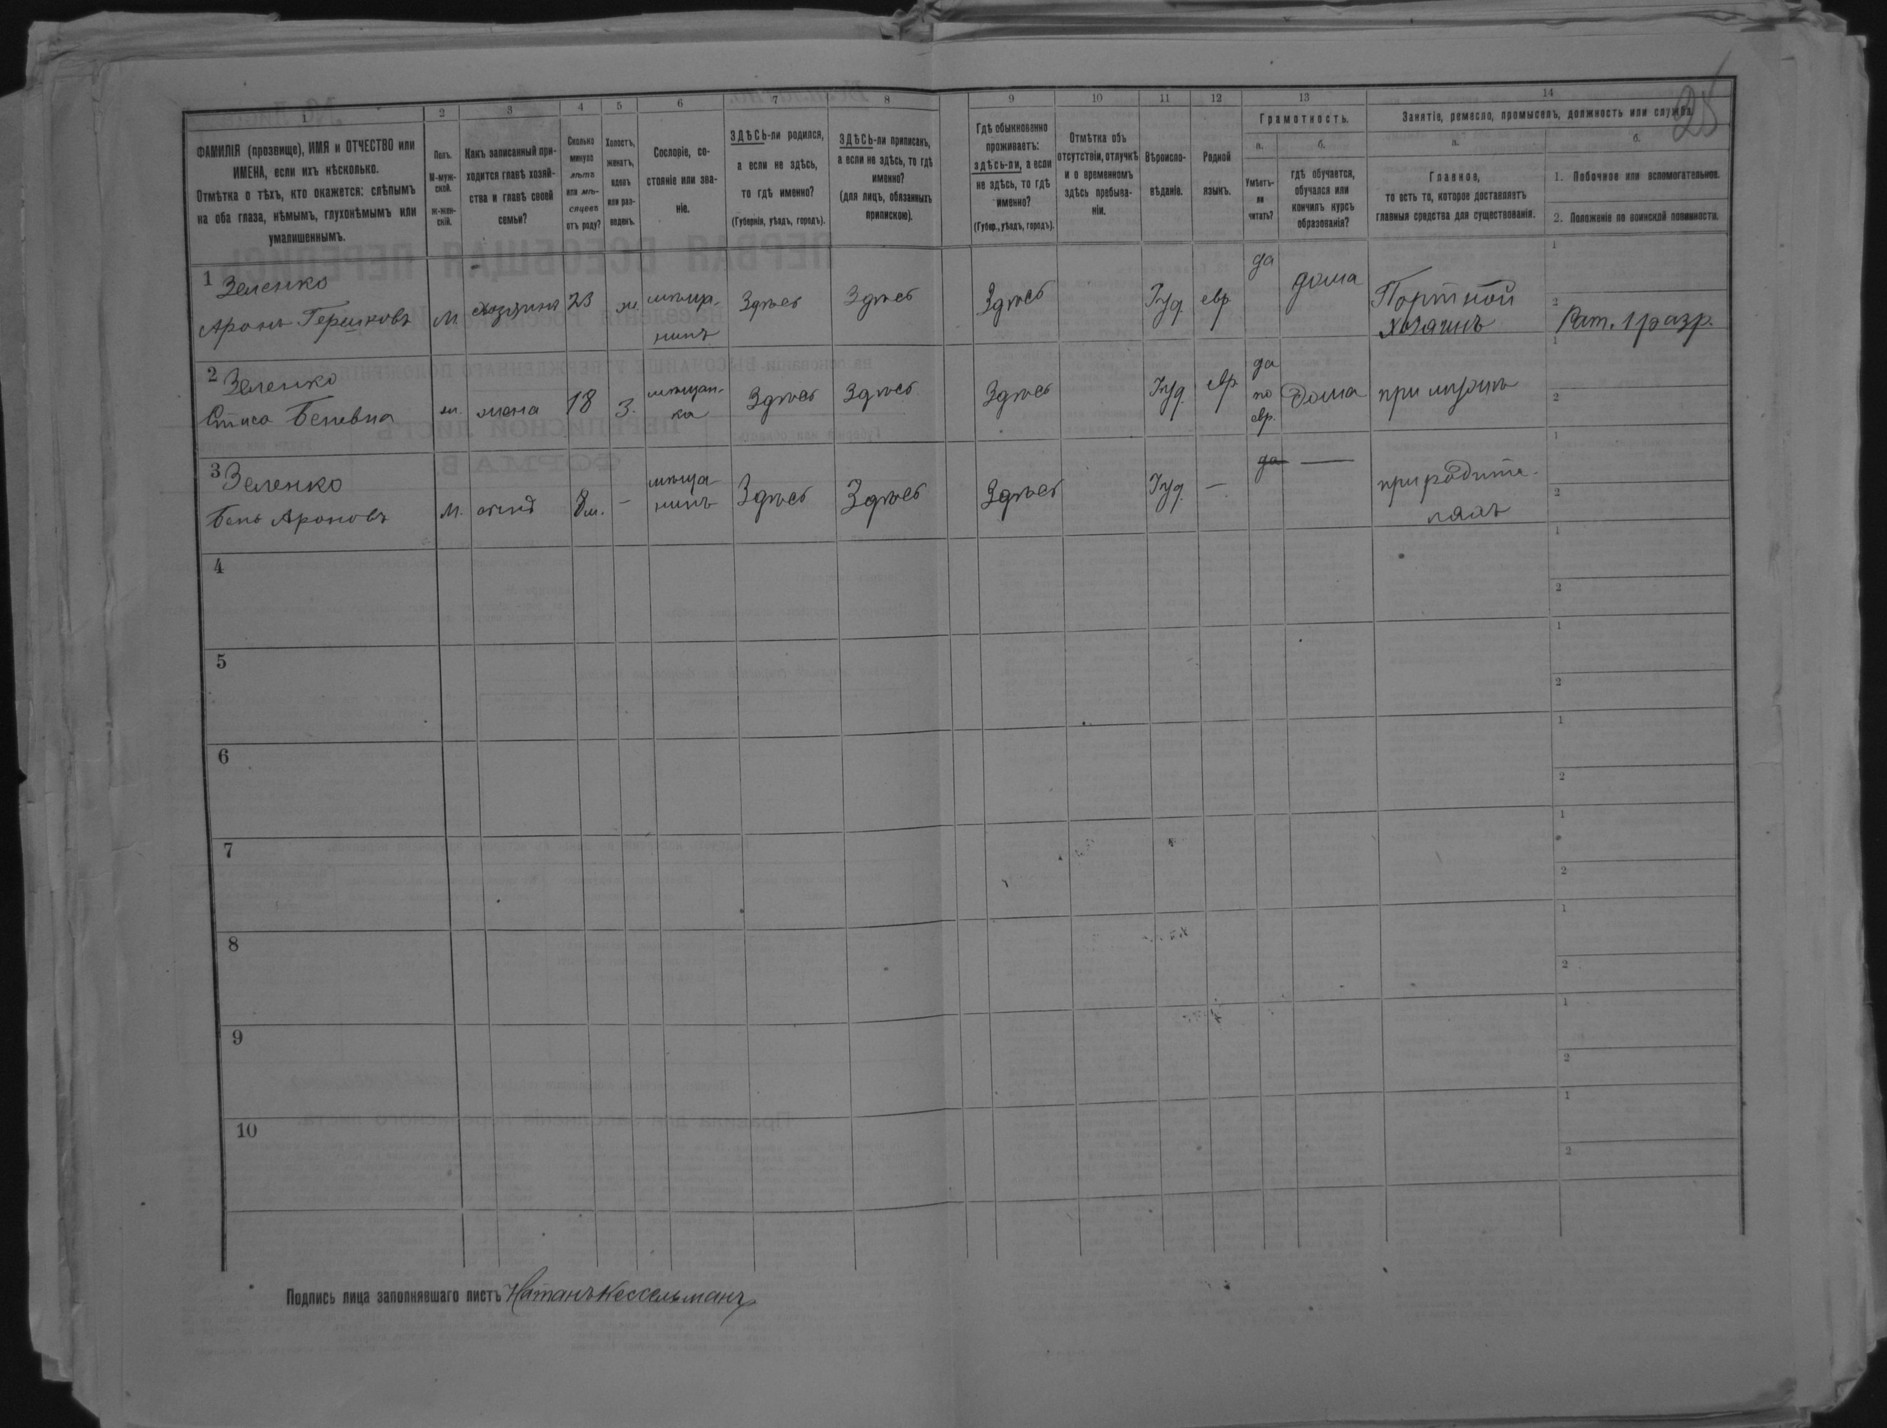 25
1 2 3 4 5 6 7 8 9 10 11 12 13 14
ФАМИЛІЯ (прозвище), ИМЯ и ОТЧЕСТВО или
ИМЕНА, если ихъ нѣсколько.
Отмѣтка о тѣхъ, кто окажется: слѣпымъ
на оба глаза, нѣмымъ, глухонѣмымъ или
умалишеннымъ.
Полъ.
М-муж-
ской.
ж-жен-
скій.
Какъ записанный при-
ходится главѣ хозяй-
ства и главѣ своей
семьи?
Сколько
минуло
лѣтъ
или мѣ-
сяцевъ
отъ роду?
Холостъ,
женатъ,
вдовъ
или раз-
веденъ.
Сословіе, со-
стояніе или зва-
ніе.
ЗДѢСЬ-ли родился,
а если не здѣсь,
то гдѣ именно?
(Губернія, уѣздъ, городъ).
ЗДѢСЬ-ли приписанъ,
а если не здѣсь, то гдѣ
именно?
(для лицъ, обязанныхъ
припискою).
Гдѣ обыкновенно
проживаетъ:
здѣсь-ли, а если
не здѣсь, то гдѣ
именно?
(Губер., уѣздъ, городъ).
Отмѣтка объ
отсутствіи, отлучкѣ
и о временномъ
здѣсь пребыва-
ніи.
Вѣроиспо-
вѣданіе.
Родной
языкъ.
Грамотность.
а.
Умѣетъ-
ли
читать?
б.
гдѣ обучается,
обучался или
кончилъ курсъ
образованія?
Занятіе, ремесло, промыселъ, должность или служба.
а.
Главное,
то есть то, которое доставляетъ
главныя средства для существованія.
б.
1. Побочное или вспомогательное.
2. Положеніе по воинской повинности.
1 Зеленко
Аронъ Гершковъ
М. хозяинъ 23 ж. мѣща-
нинъ
Здѣсь Здѣсь Здѣсь Іуд. евр. да дома Портной
хозяинъ
1
2 Рат. 1 разр.
2 Зеленко
Беневна
ж. жена 18 з. мѣщан-
ка
Здѣсь Здѣсь Здѣсь Іуд. евр. да
по
евр.
дома при мужѣ
1
2
3 Зеленко
Бень Ароновъ
М. сынъ 8 м. – мѣща
нинъ
Здѣсь Здѣсь Здѣсь Іуд. – да — при родите-
ляхъ
1
2
4
1
2
5
1
2
6
1
2
7
1
2
8
1
2
9
1
2
10
1
2
Подпись лица заполнявшаго листъ Натанъ Кессельманъ